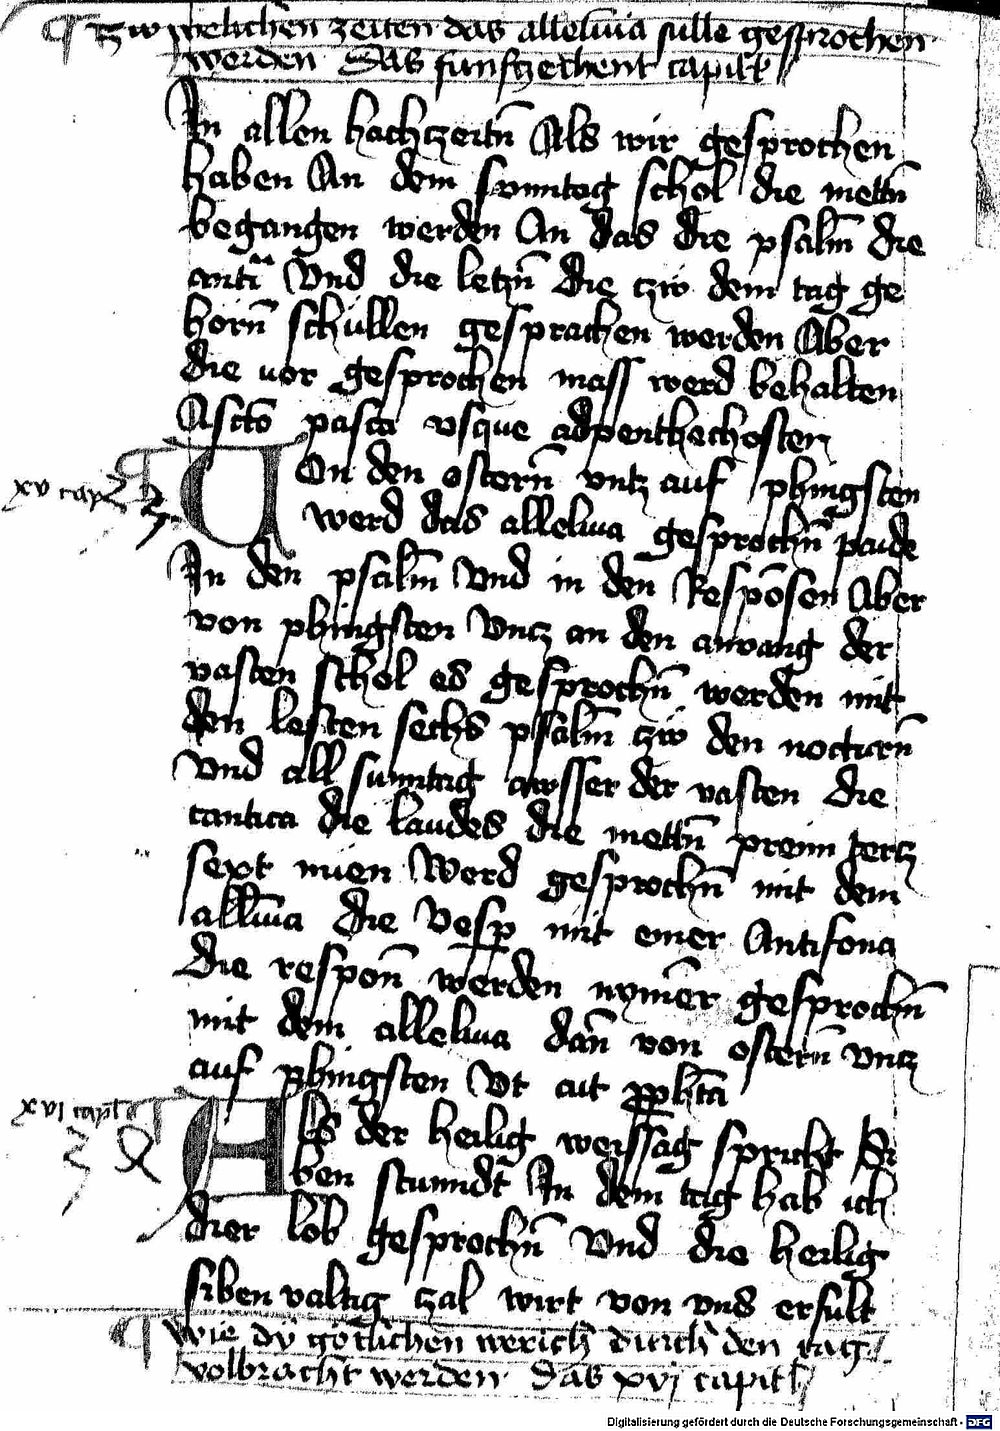 Zw welichen zeiten das alleluia sulle gesprochen
werden Das funfzechent capitel
In allen hachczeitn̄ Als wir gesprochen
haben An dem sunntag schol die mettn̄
begangen werden An das die psalm̄ die
anti Vnd die letzn̄ die czw dem tag ge
horn̄ schullen gesprachen werden Aber
die vor gesprochen mass werd behalten
A scto pasca vsque ad penthechosten
Uon den ostern̄ vntz auf phingsten
xv cap
werd das alleluia gesprochn̄
In den psalm̄ Vnd in den Respōsen Aber
von phingsten Vncz an den anvang der
vasten schol es gesprochn̄ werden mit
den lesten sechs psalm̄ czw den nocturn̄
Vnd all sunntag awsser der vasten die
cantica die laudes die mettn̄ preim tercz
sext nuen Werd gesprochn̄ mit dem
alleluia die Vesp̱ mit einer Antifona
die respon̄ werden nymēr gesprochn̄
mit dem alleluia dan̄ von ostern̄ Vncz
auf phingsten Vt ait pp̄hta
xvi capl
Als der heilig weissag spricht Si
ben stunndt In dem tag hab ich
dier lob gesprochn̄ Vnd die heilig
siben valtig czal wirt von vns erfult
Wie dy gotlichen werich durch den tag
volbracht werden Das xvj capitl
Digitalisierung gefördert durch die Deutsche Forschungsgemeinschaft - DFG